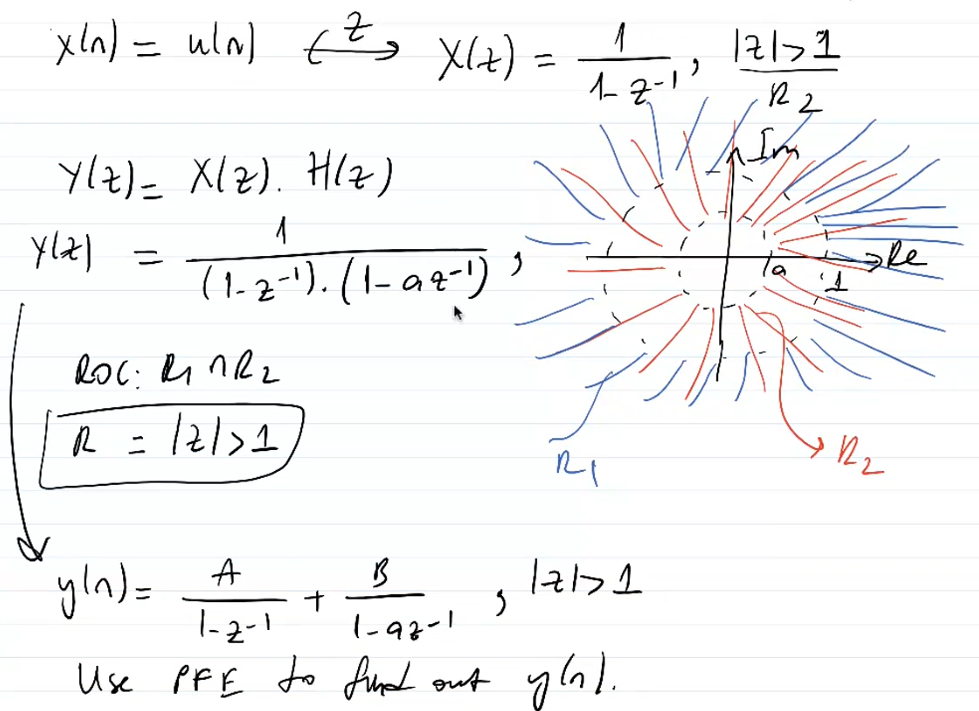 x(n) = u(n) ⟷ᶻ X(z) = 1/(1-z⁻¹), |z|>1
R2
Y(z) = X(z). H(z)
Y(z) = 1/((1-z⁻¹).(1-az⁻¹)),
Im
Re
a
1
ROC: R1 ∩ R2
R = |z|>1
R1
R2
y(n) = A/(1-z⁻¹) + B/(1-az⁻¹), |z|>1
Use PFE to find out y(n).